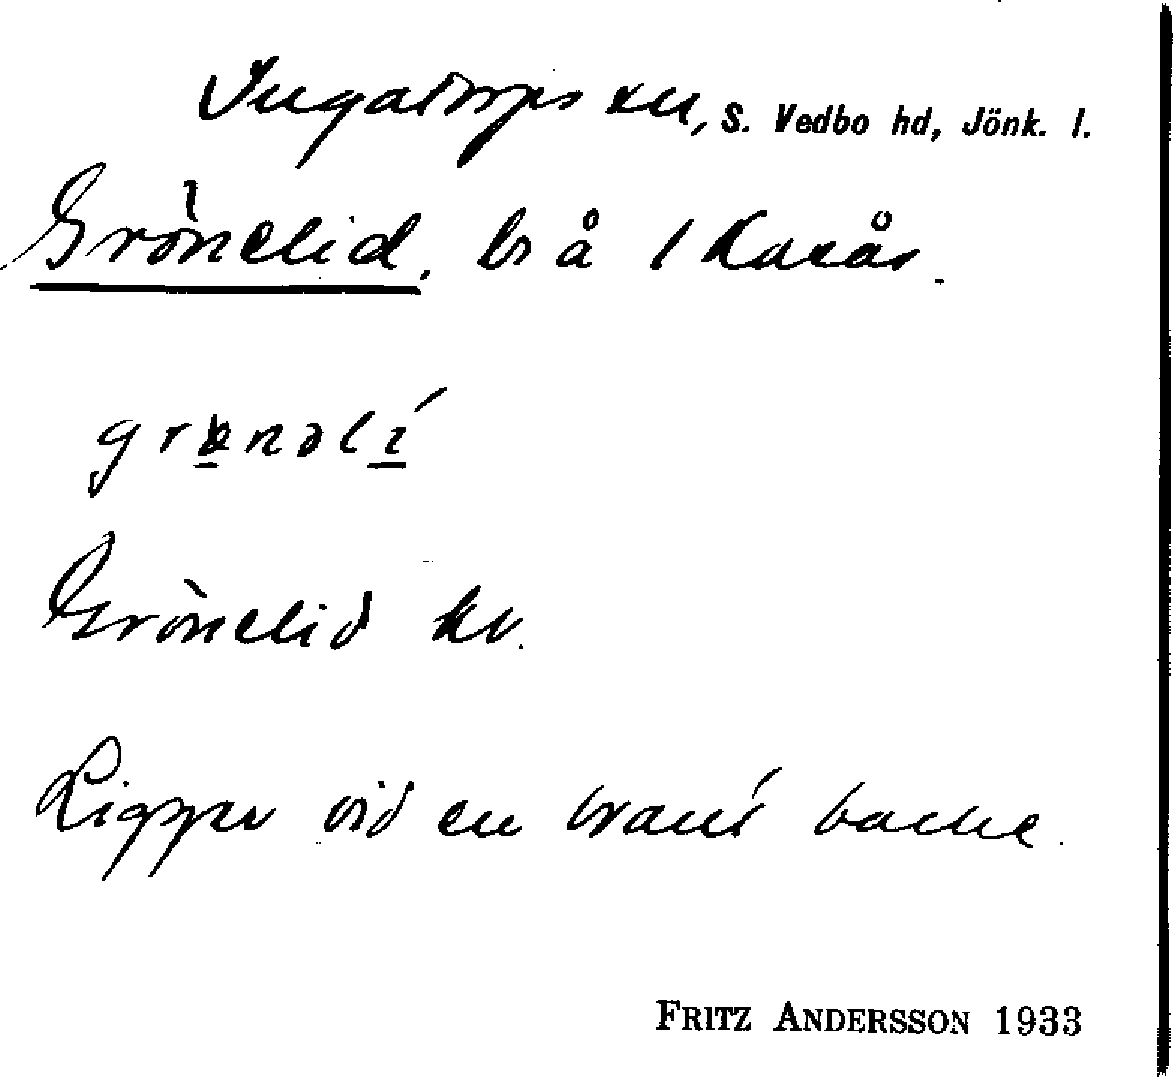 Ingatorps sn, S. Vedbo hd, Jönk. l.
Grönelid, br å 1 Karås.
grønəlí
Grönelid kv.
Ligger vid en brant backe.
FRITZ ANDERSSON 1933